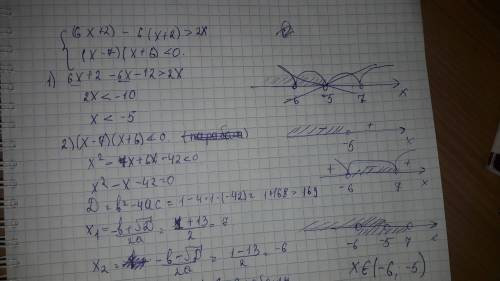 (6x+2) - 6(x+2) > 2x
(x-7)(x+6) < 0.
1) 6x+2 - 6x-12 > 2x
2x < -10
x < -5
2) (x-7)(x+6) < 0.
x² - 7x + 6x - 42 < 0
x² - x - 42 = 0
D = b² - 4ac = 1 - 4·1·(-42) = 1+168 = 169
x₁ = (-b+√D)/2a = (1+13)/2 = 7
x₂ = (-b-√D)/2a = (1-13)/2 = -6
-6 -5 7 x
-5 + x
+ -6 7 + x
-6 -5 7
x∈(-6, -5)